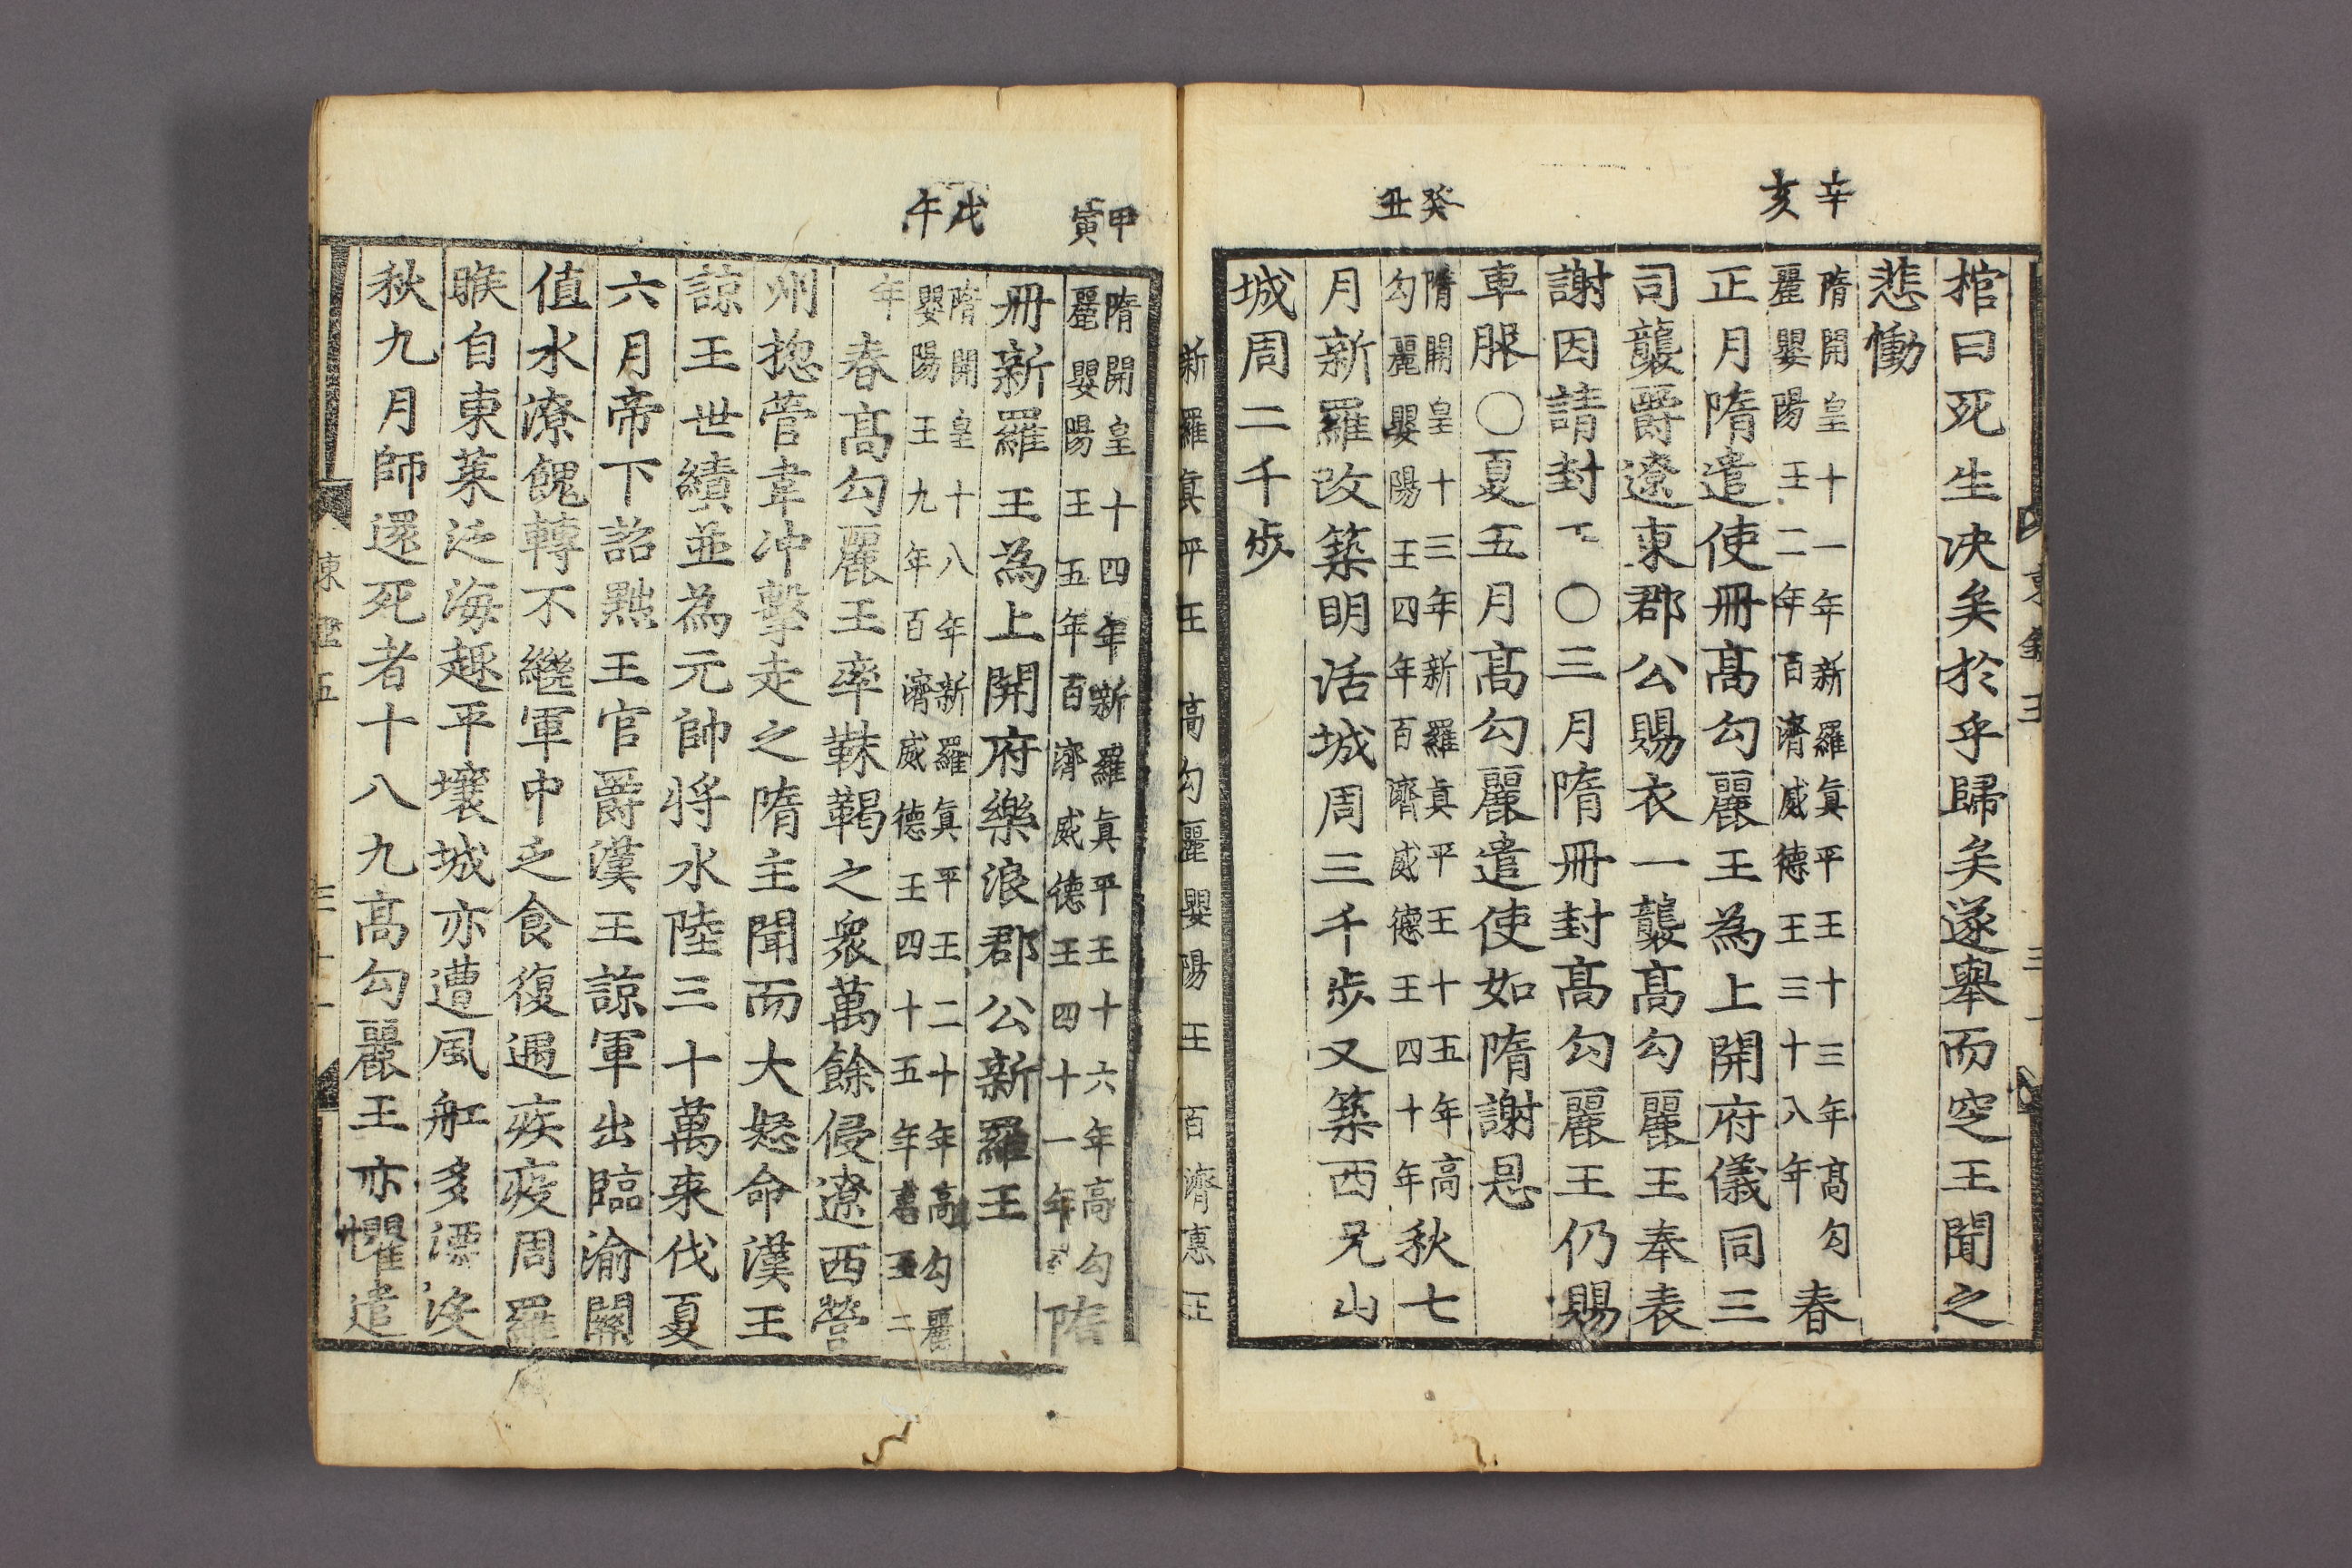 辛亥
癸丑
棺曰死生决矣於乎歸矣遂舉而窆王聞之
悲慟
隋開皇十一年新羅眞平王十三年髙勾
麗嬰陽王二年百濟威德王三十八年
春
正月隋遣使冊髙勾麗王為上開府儀同三
司襲爵遼東郡公賜衣一襲髙勾麗王奉表
謝因請封王〇三月隋冊封髙勾麗王仍賜
車服〇夏五月髙勾麗遣使如隋謝恩
隋開皇十三年新羅眞平王十五年高
勾麗嬰陽王四年百濟威德王四十年
秋七
月新羅改築明活城周三千歩又築西兄山
城周二千歩
新羅眞平王 高勾麗嬰陽王 百濟惠王
甲寅
戊午
隋開皇十四年新羅眞平王十六年高勾
麗嬰陽王五年百濟威德王四十一年
隋
冊新羅王為上開府樂浪郡公新羅王
隋開皇十八年新羅眞平王二十年高勾麗
嬰陽王九年百濟威德王四十五年惠王二
年
春髙勾麗王率靺鞨之衆萬餘侵遼西營
州揔管韋冲擊走之隋主聞而大怒命漢王
諒王世績並為元帥將水陸三十萬來伐夏
六月帝下詔黜王官爵漢王諒軍出臨渝關
值水潦餽轉不繼軍中乏食復遇疾疫周羅
睺自東萊泛海趣平壤城亦遭風舡多漂没
秋九月師還死者十八九髙勾麗王亦懼遣
東 五